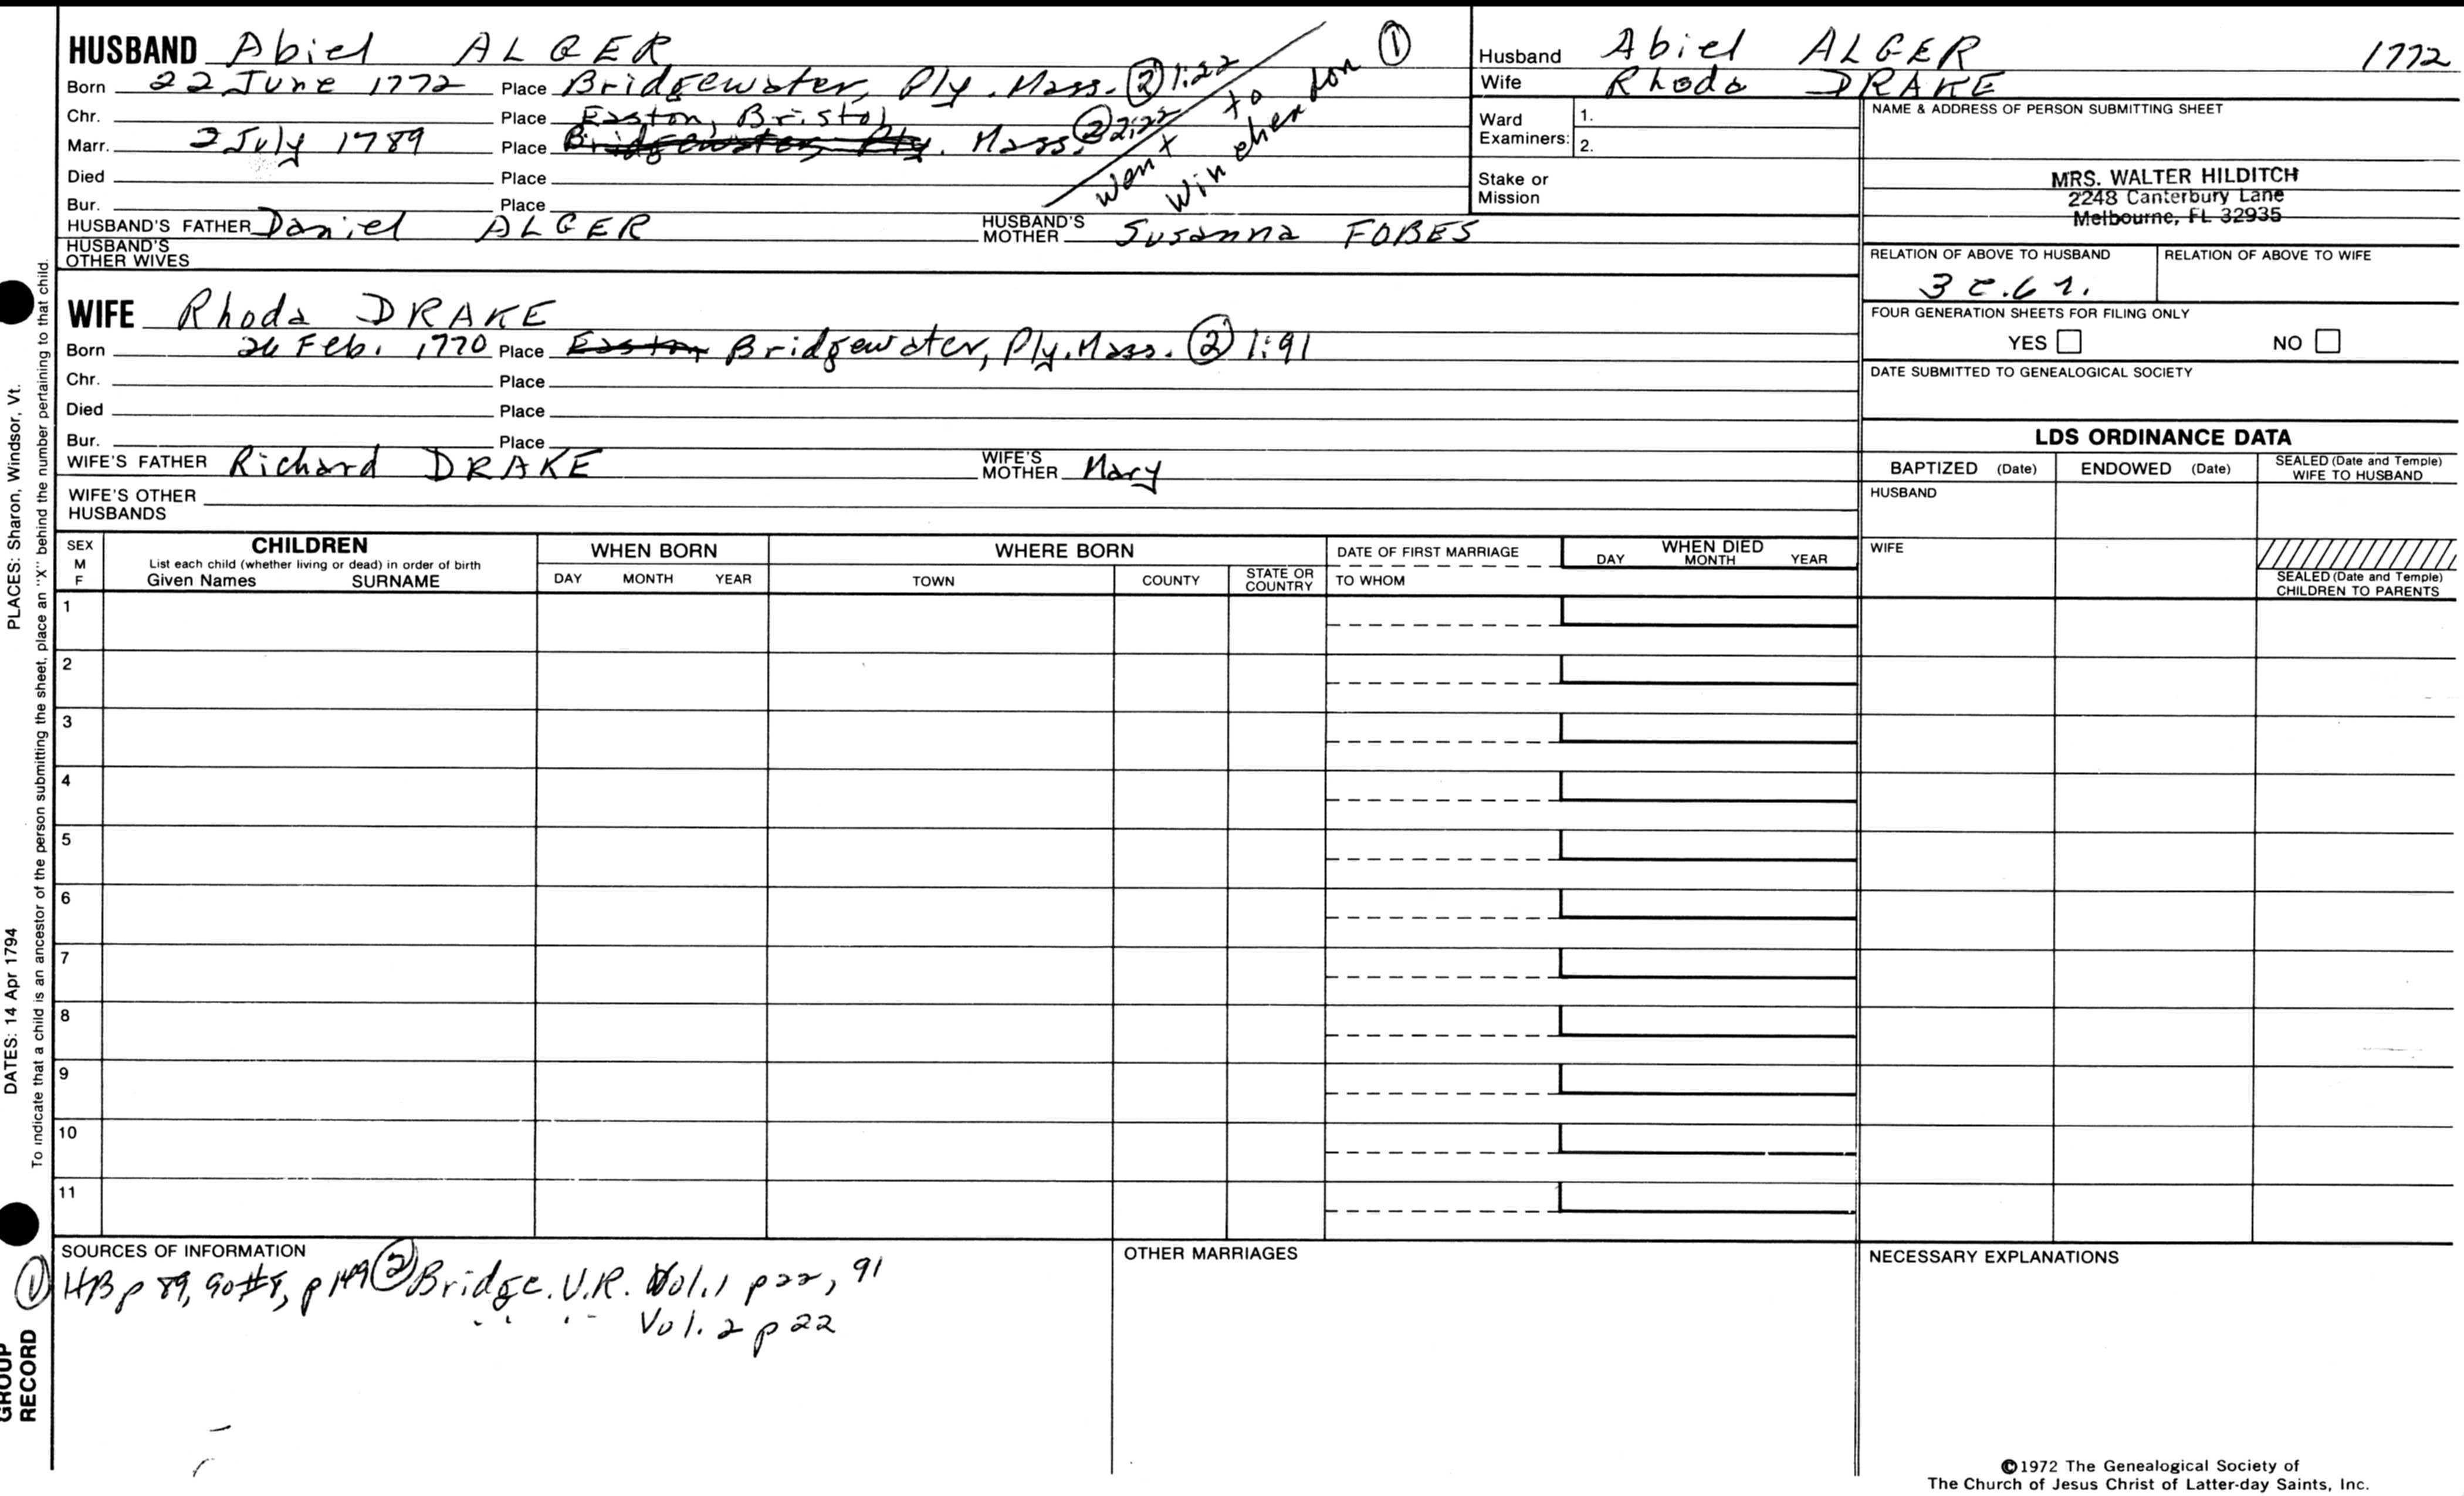 HUSBAND Abiel ALGER
Born 22 June 1772 Place Bridgewater, Ply. Mass. ② 1:22
Chr. Place Easton, Bristol
Marr. 2 July 1789 Place Bridgewater Ply. Mass. ② 2:22
Died Place
Bur. Place
went to
Winchendon ①
HUSBAND'S FATHER Daniel ALGER HUSBAND'S MOTHER Susanna FOBES
HUSBAND'S OTHER WIVES
WIFE Rhoda DRAKE
Born 26 Feb. 1770 Place Easton Bridgewater, Ply. Mass. ② 1:91
Chr. Place
Died Place
Bur. Place
WIFE'S FATHER Richard DRAKE WIFE'S MOTHER Mary
WIFE'S OTHER HUSBANDS
Husband Abiel ALGER 1772
Wife Rhoda DRAKE
Ward Examiners: 1.
2.
Stake or Mission
NAME & ADDRESS OF PERSON SUBMITTING SHEET
MRS. WALTER HILDITCH
2248 Canterbury Lane
Melbourne, FL 32935
RELATION OF ABOVE TO HUSBAND RELATION OF ABOVE TO WIFE
3 c. 6 r.
FOUR GENERATION SHEETS FOR FILING ONLY
YES NO
DATE SUBMITTED TO GENEALOGICAL SOCIETY
LDS ORDINANCE DATA
BAPTIZED (Date) ENDOWED (Date) SEALED (Date and Temple) WIFE TO HUSBAND
HUSBAND
WIFE
SEALED (Date and Temple) CHILDREN TO PARENTS
SEX M F
CHILDREN
List each child (whether living or dead) in order of birth
Given Names SURNAME
WHEN BORN
DAY MONTH YEAR
WHERE BORN
TOWN COUNTY STATE OR COUNTRY
DATE OF FIRST MARRIAGE
TO WHOM
WHEN DIED
DAY MONTH YEAR
1
2
3
4
5
6
7
8
9
10
11
SOURCES OF INFORMATION
① HB p 89, 90 #8, p 149 ② Bridge. V.R. Vol. 1 p 22, 91
" " Vol. 2 p 22
OTHER MARRIAGES
NECESSARY EXPLANATIONS
©1972 The Genealogical Society of
The Church of Jesus Christ of Latter-day Saints, Inc.
PLACES: Sharon, Windsor, Vt.
DATES: 14 Apr 1794
To indicate that a child is an ancestor of the person submitting the sheet, place an "X" behind the number pertaining to that child.
GROUP
RECORD